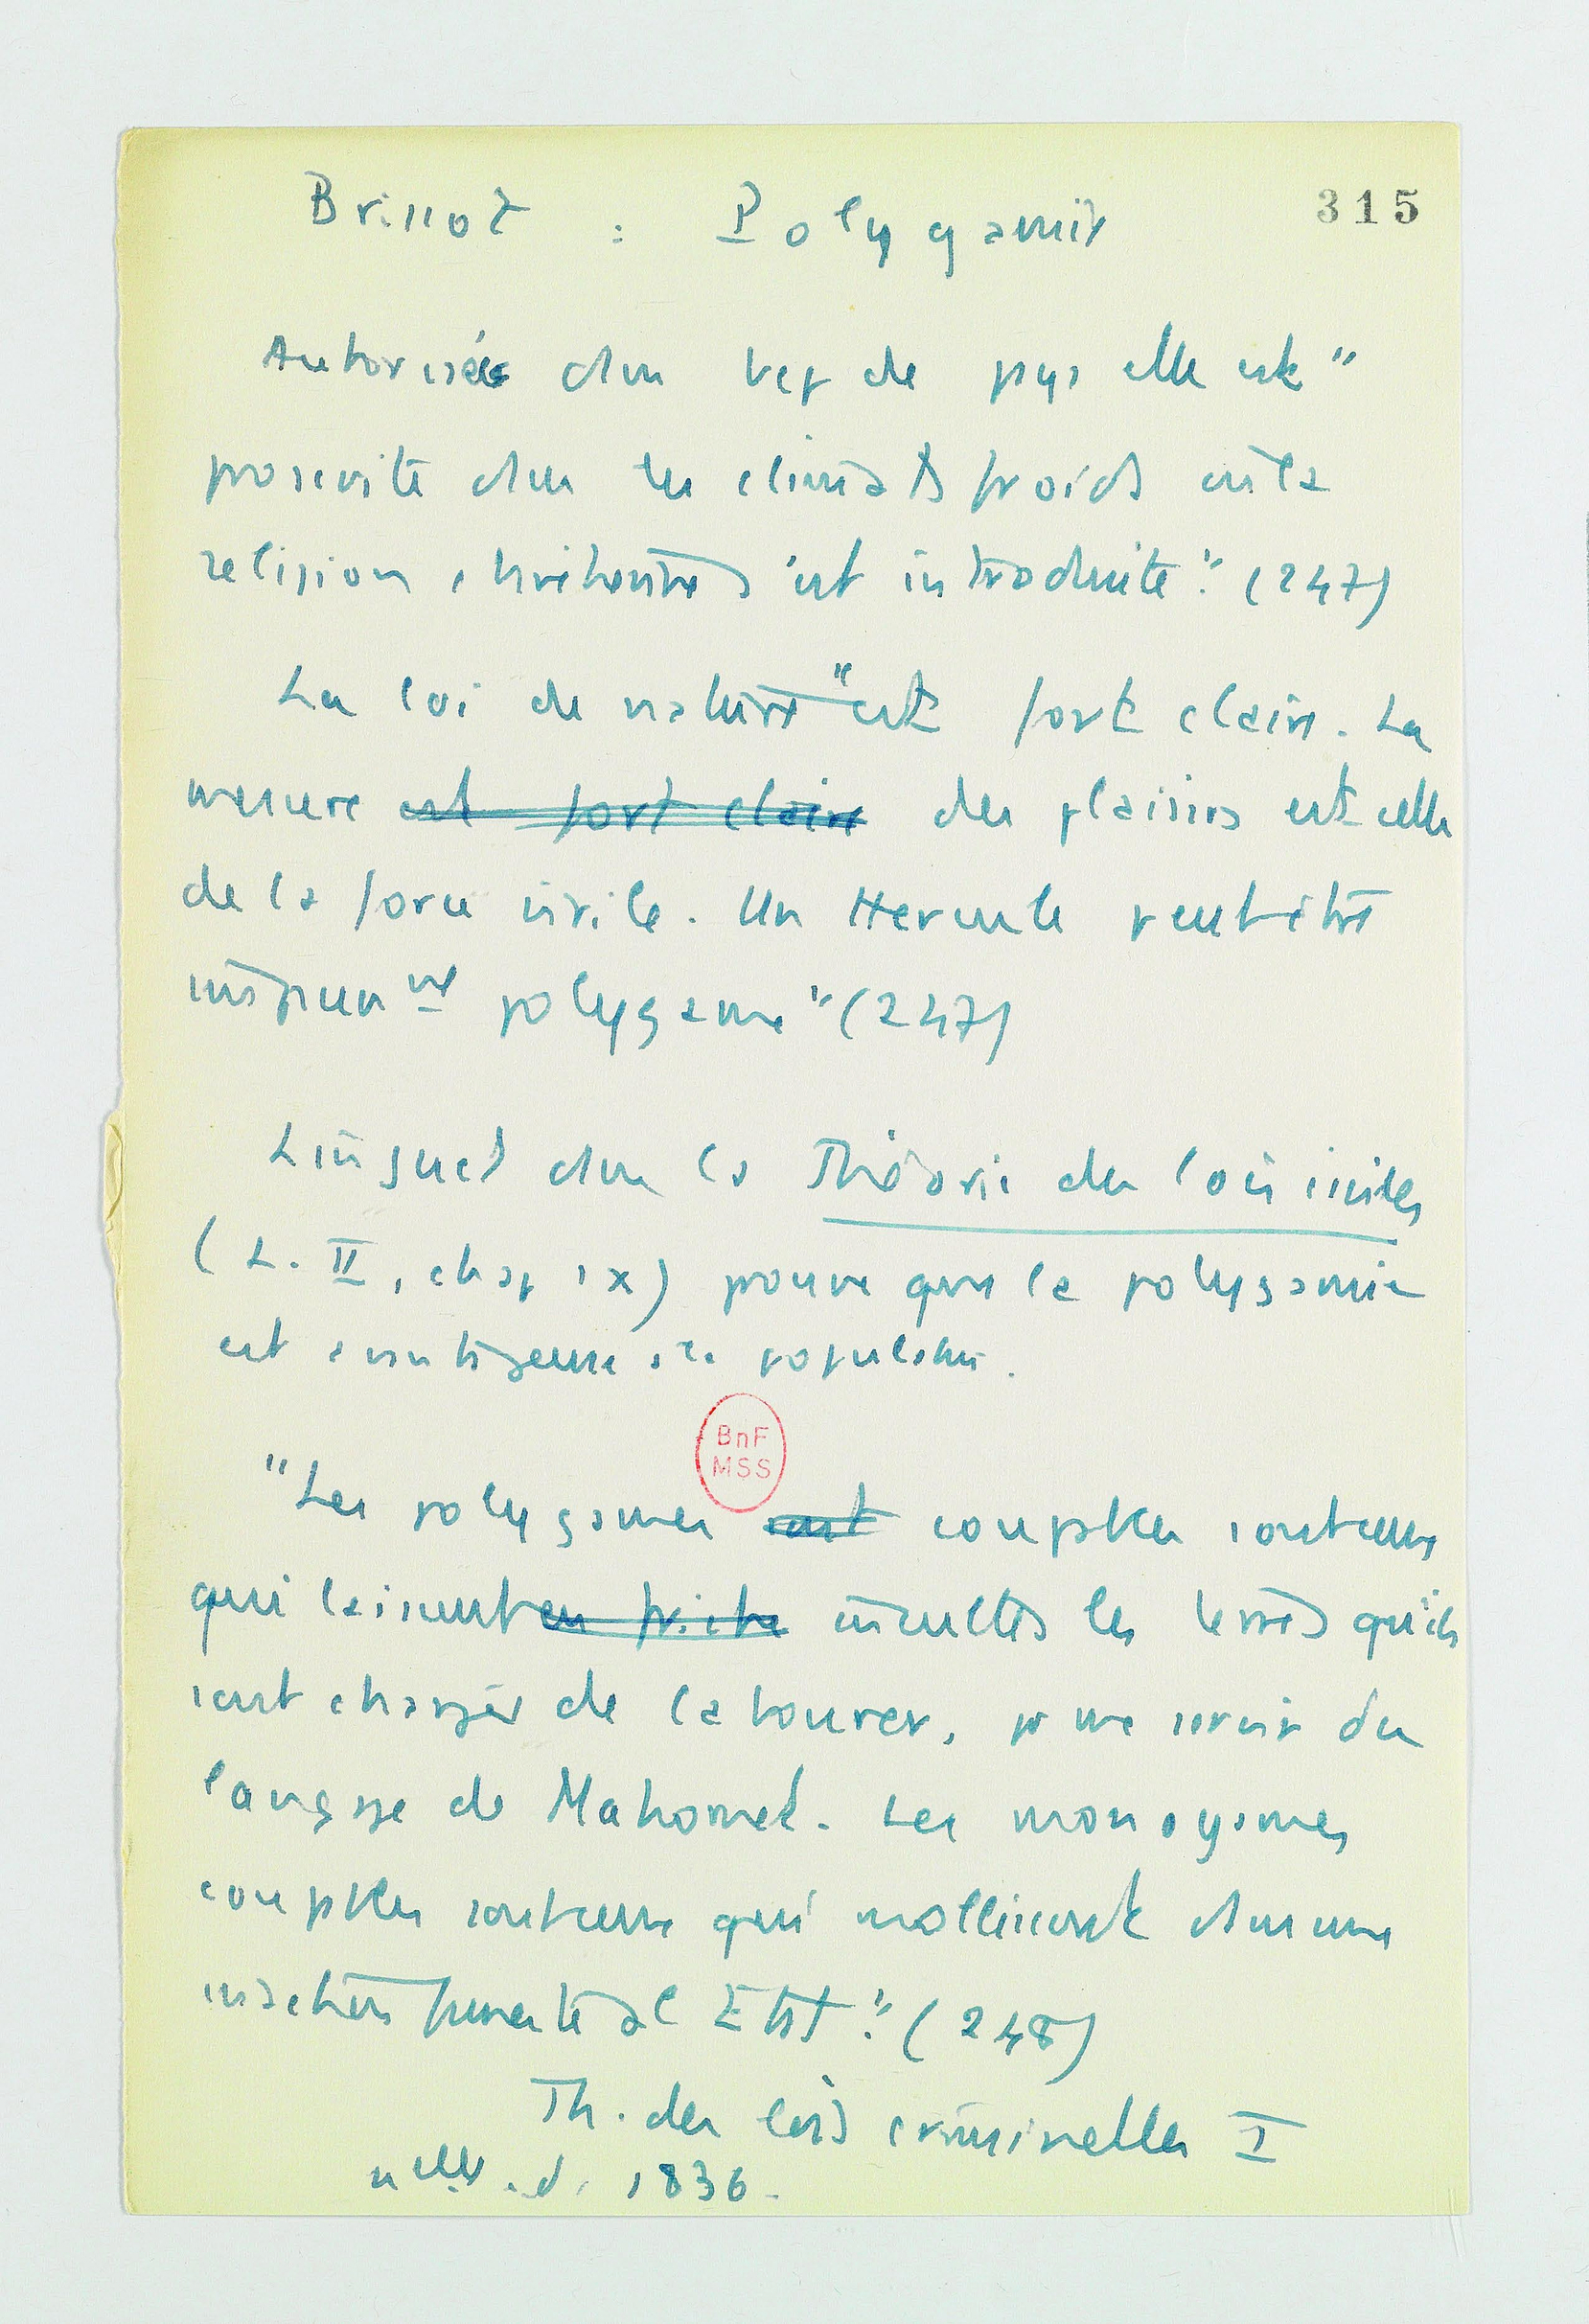 Brissot : Polygamie
315
Autorisée dans bep de pays elle est "
proscrite dans les climats froids où la
religion chrétienne s'est introduite." (247)
La loi de nature "est fort claire. La
mesure est fort claire des plaisirs est celle
de la force virile. Un Hercule peut être
impunémt polygame" (247)
Linguet dans la Théorie des lois civiles
(L. II, chap IX) prouve que la polygamie
est avantageuse à la population.
BnF
MSS
"Les polygames coupables sont ceux
qui laissent en friche incultes les terres qu'ils
sont chargés de labourer, pr me servir du
langage de Mahomet. Les monogames
coupables sont ceux qui mollissent dans une
inaction funeste à l'Etat." (248)
Th. des lois criminelles I
nelle éd. 1836.